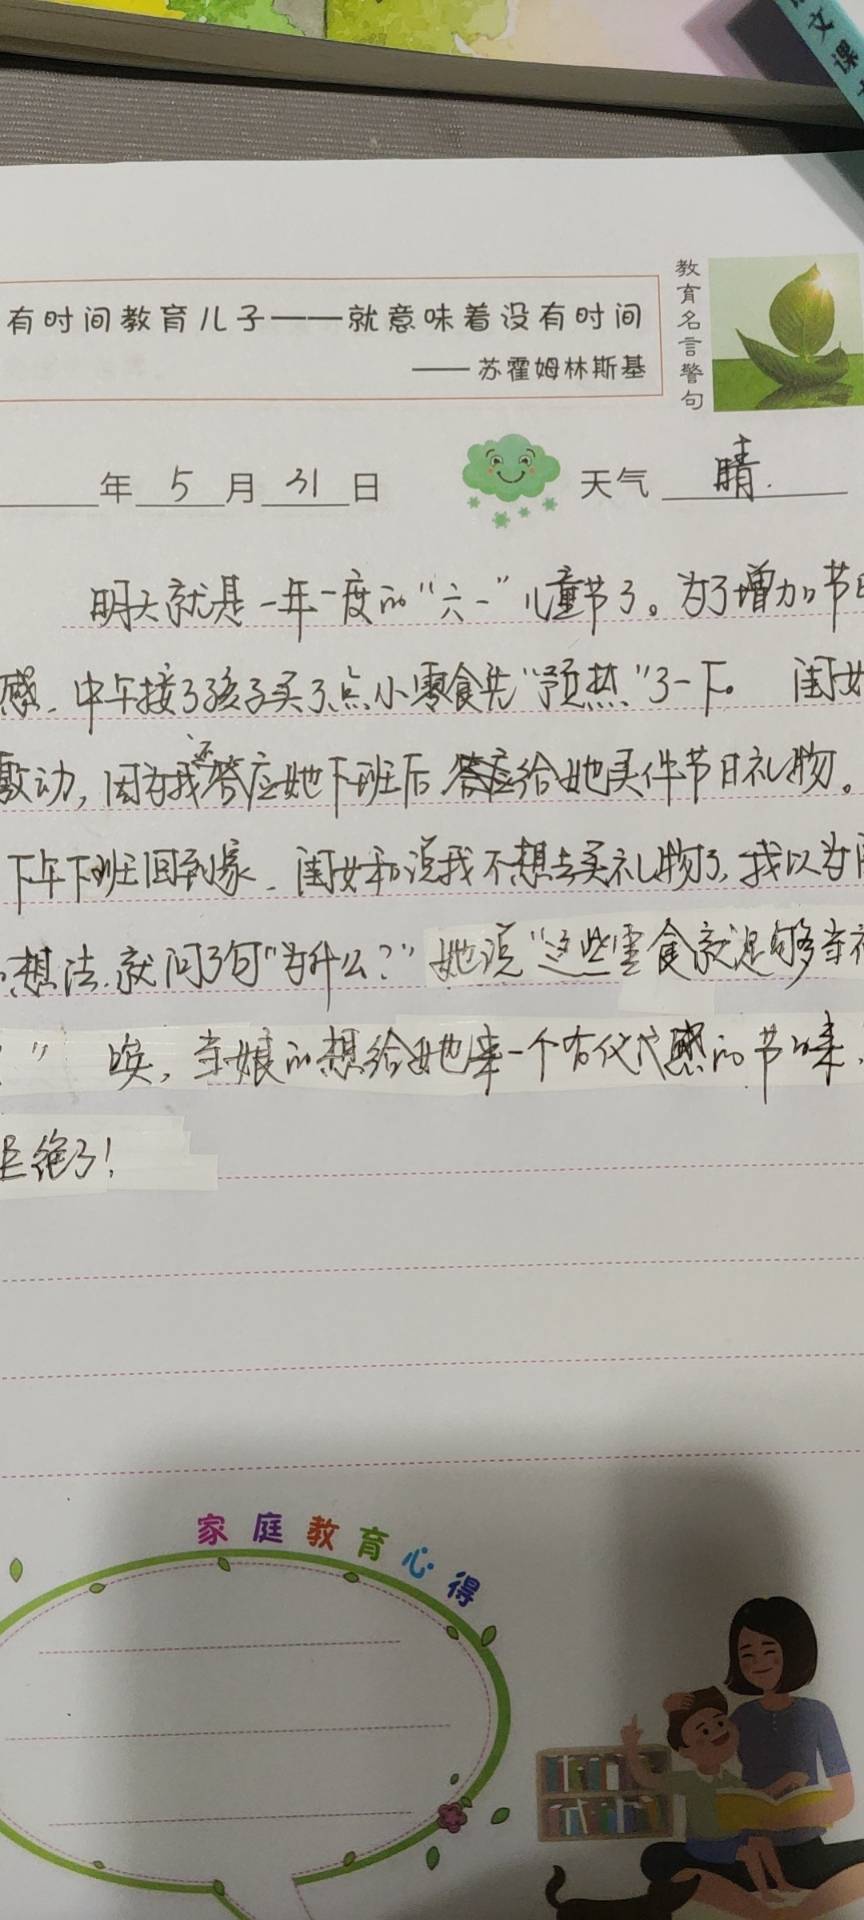 文课
有时间教育儿子——就意味着没有时间
——苏霍姆林斯基
教育名言警句
年 5 月 31 日 天气 晴.
明天就是一年一度的“六一”儿童节了。为了增加节日
感,中午接了孩子买了点小零食先“预热”了一下。 闺女
激动,因为我还答应她下班后 给她买件节日礼物。
下午下班回到家,闺女和说我不想去买礼物了,我以为
想法,就问了句“为什么?”她说“这些零食就足够当
” 唉,当娘的想给她来一个有仪式感的节
拒绝了!
家庭教育心得